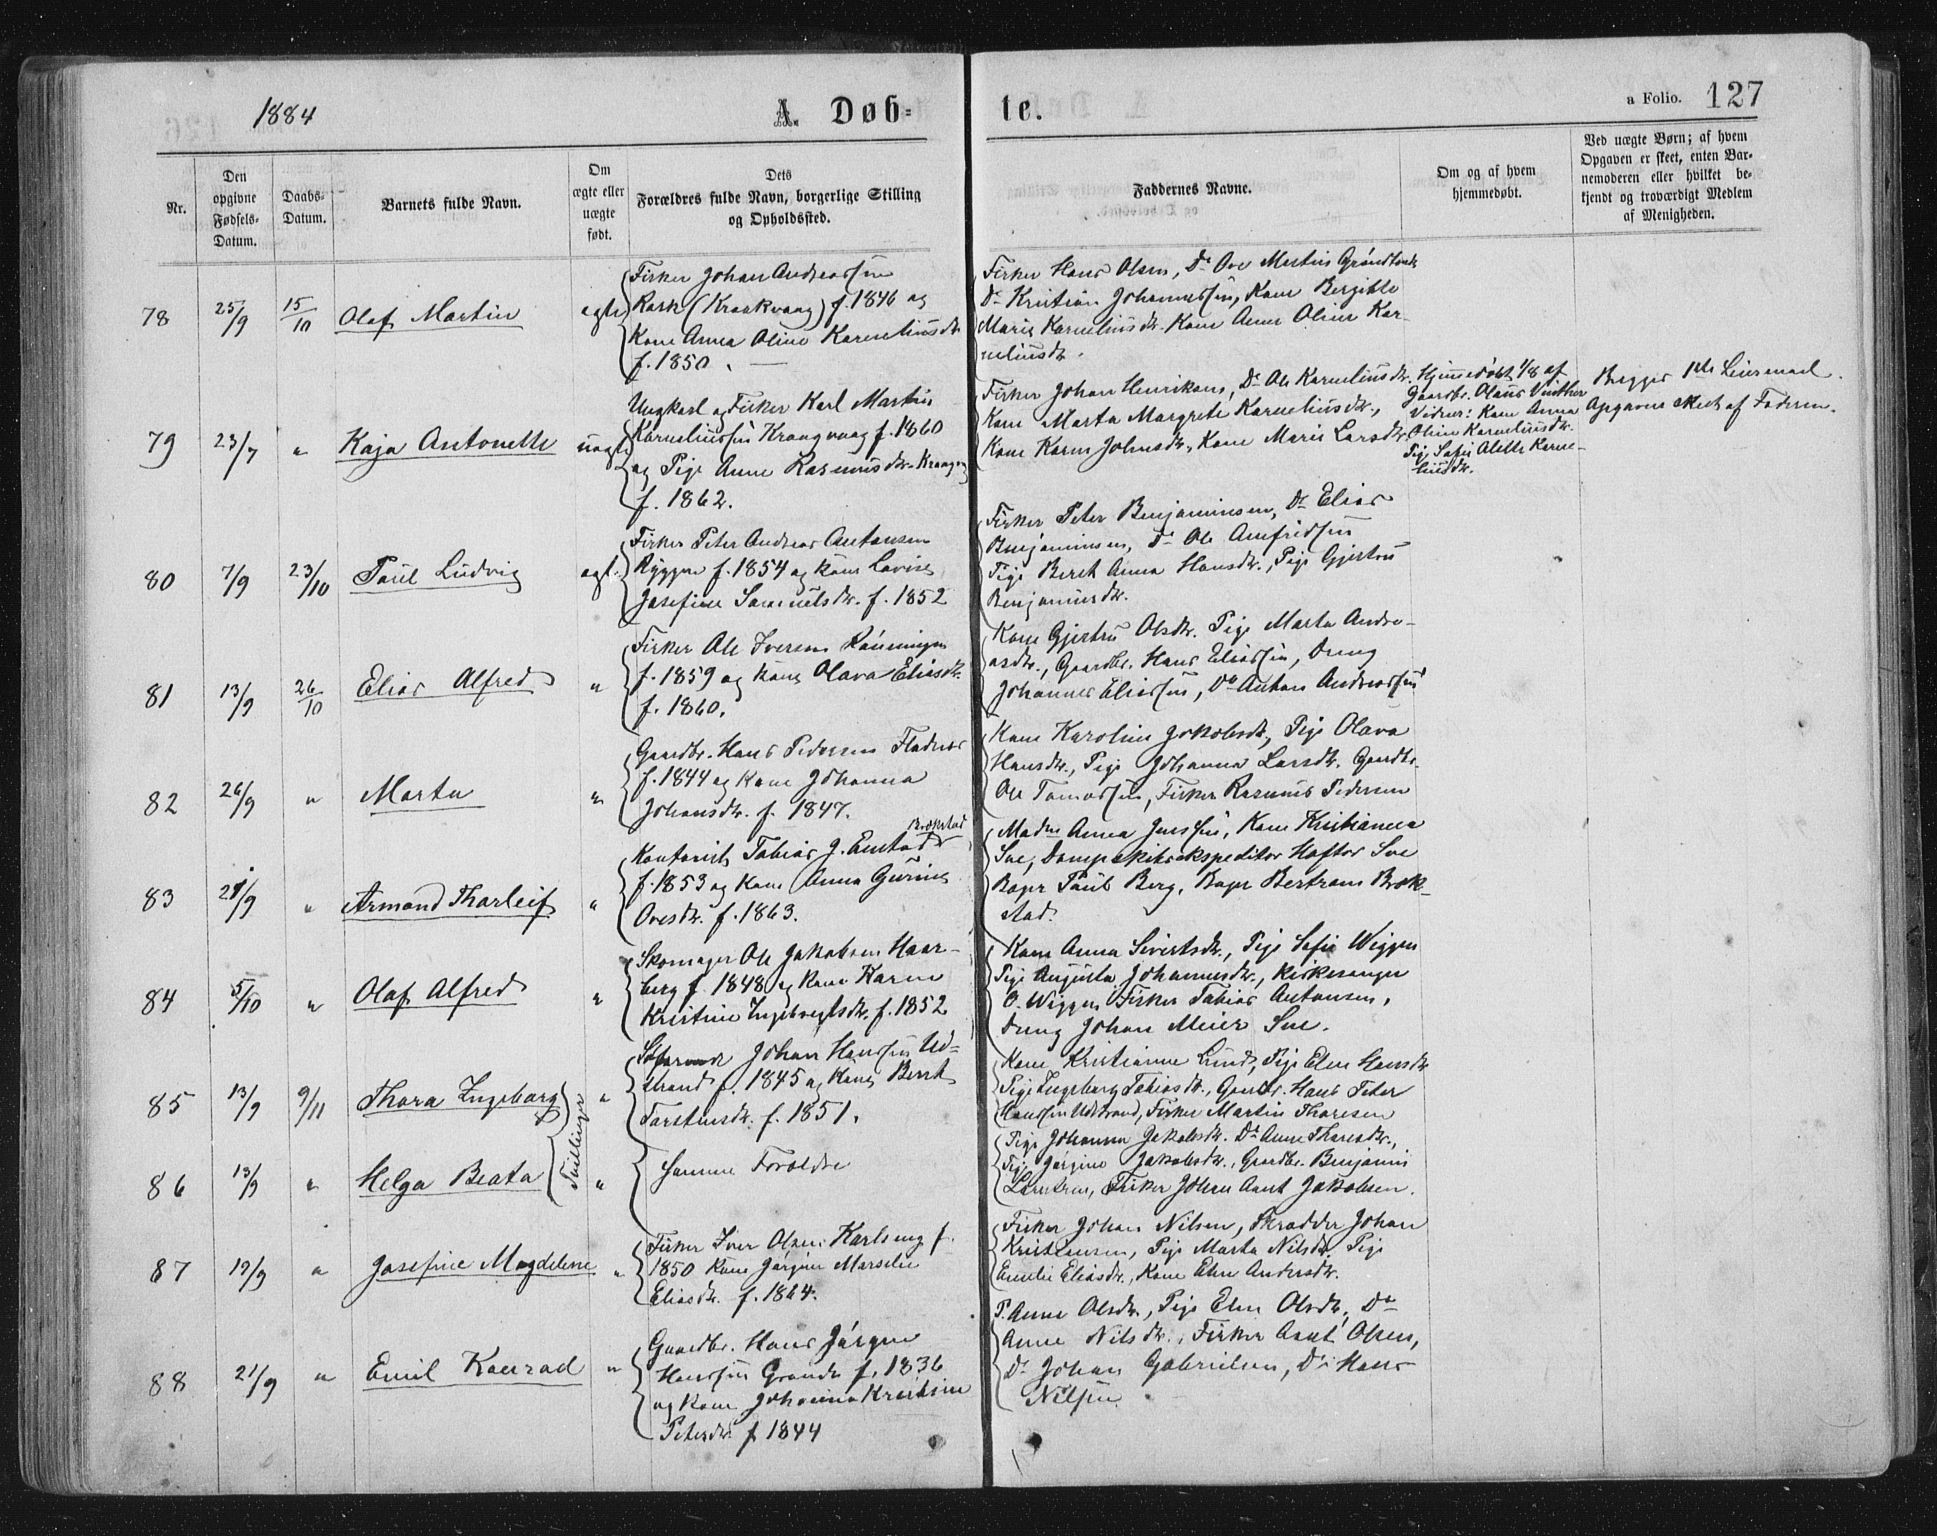 1884
A. Døb=
te.
a Folio. 127
Nr.
Den opgivne Fødsels-Datum.
Daabs-Datum.
Barnets fulde Navn.
Om ægte eller uægte født.
Dets Forældres fulde Navn, borgerlige Stilling og Opholdssted.
Faddernes Navne.
Om og af hvem hjemmedøbt.
Ved uægte Børn; af hvem Opgaven er skeet, enten Bar-nemoderen eller hvilket be-kjendt og troværdigt Medlem af Menigheden.
78 25/9 15/10 Olaf Martin ægte
Fisker Johan Andreassen
(Kraakvaag) f. 1846 og
Kone Anna Oline Korneliusdtr
f. 1850.
Fisker Hans Olsen, Do Ove Martin
Do Kristian Johannessen, Kone Bergitte
Marie Korneliusdtr. Kone Anna Oline Kor-
neliusdtr.
79 23/7 " Kaja Antonette uægte
Ungkarl og Fisker Karl Martin
Korneliussen Kraagvaag f. 1860
og Pige Anne Rasmusdtr. Kraagv
f. 1862.
Fisker Johan Henriksen, Do Ole Korneliusdtr.
Kone Marta Margrete Korneliusdtr.,
Kone Karen Johnsdtr., Kone Marie Larsdtr.
Hjemmedøbt 1/8 af
Gaardbr. Olaus Vinther
Vidner: Kone Anna
Oline Korneliusdtr.
Pige Sofie Alette Korne-
liusdtr.
Begges 1ste Leiermaal.
Opgaven skeet af Faderen.
80 7/9 23/10 Paul Ludvig ægt.
Fisker Peter Andreas Antonsen
Ryggen f. 1854 og Kone Lovise
Josefine Samuelsdtr. f. 1852
Fisker Peter Benjaminsen, Do Elias
Benjaminsen, Do Ole Arnfridsen
Pige Beret Anna Hansdtr., Pige Gjertru
Benjaminsdtr.
81 13/9 26/10 Elias Alfred "
Fisker Ole Iversen Rønningen
f. 1859 og Kone Olava Eliasdtr.
f. 1860.
Kone Gjertru Olsdtr. Pige Marta Andre-
asdtr., Gaardbr. Hans Eliassen, Dreng
Johannes Eliassen, Do Anton Andreassen
82 26/9 " Marta "
Gaardbr. Hans Pedersen Fladnes
f. 1844 og Kone Johanna
Johansdtr. f. 1847.
Kone Karoline Jakobsdtr., Pige Olava
Hansdtr., Pige Johanna Larsdtr. Gaardbr.
Ole Tomassen, Fisker Rasmus Pedersen
83 29/9 " Armand Tharleif "
Brækstad
Kontorist Tobias J.
f. 1853 og Kone Anna Gurine
Ovesdtr. f. 1863.
Madm Anna Jenssen, Kone Kristianna
Sve, Dampskibsekspeditør Hoftor Sve
Bager Paul Berg, Bager Bertram Bræk-
stad.
84 5/10 " Olaf Alfred "
Skomager Ole Jakobsen Haar-
berg f. 1848 og Kone Karen
Kristine Ingebregtsdtr. f. 1852
Kone Anna Sivertsdtr., Pige Sofie Wiggen
Pige Augusta Johannesdtr., Kirkesanger
O. Wiggen, Fisker Tobias Antonsen,
Dreng Johan Meier Sve.
85 13/9 9/11 Thora Ingeborg "
Tvillinger
Johan Hanssen Ud-
strand f. 1845 og Kone Beret
Torstensdtr. f. 1851.
Kone Kristianne Lund, Pige Elen Hansdtr
Pige Ingeborg Tobiasdtr., Gaardbr. Hans Peter
Hanssen Udstrand, Fisker Martin Thoresen
86 13/9 " Helga Beata "
Samme Forældre
Pige Johanna Jakobsdtr. Do Anne Thoresdtr.,
Pige Jørgine Jakobsdtr., Gaardbr. Benjamin
Larsen, Fisker Johan Arnt Jakobsen.
87 19/9 " Josefine Magdelene "
Fisker Iver Olsen Karlseng f.
1850 Kone Jørgine Marselie
Eliasdtr. f. 1864.
Fisker Johan Nilsen, Skrædder Johan
Kristiansen, Pige Marta Nilsdtr. Pige
Emelie Eliasdtr., Kone Elen Andersdtr.
88 21/9 " Emil Konrad "
Gaardbr. Hans Jørgen
Hanssen Grande f. 1836
og Kone Johanna Kristine
Petersdtr f 1844
P. Anne Olsdtr., Pige Elen Olsdtr., Do
Anne Nilsdtr., Fisker Arnt Olsen,
Do Johan Gabrielsen, Do Hans
Nilsen